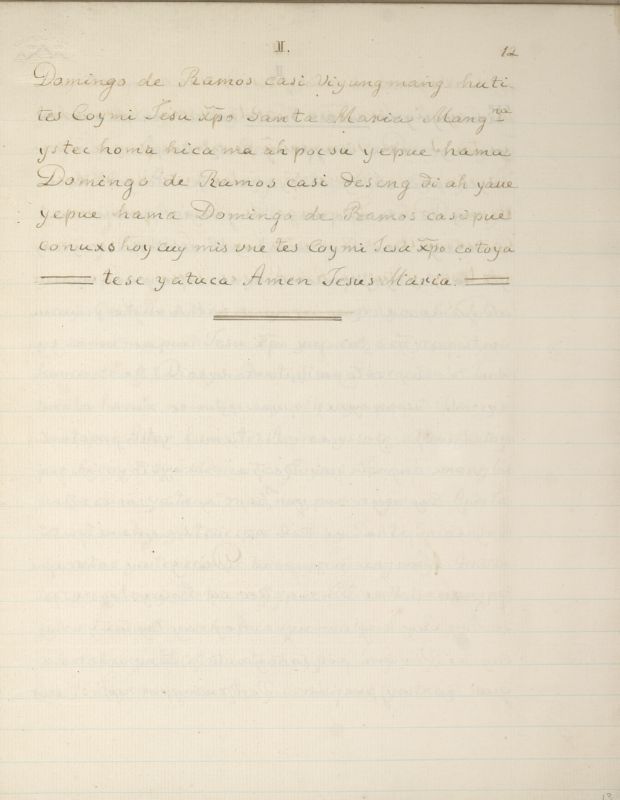 I. 12
Domingo de Ramos casi viyungmang huti
tes Coymi Jesu xp̃o Santa Maria Mangna
ystec homa hica ma ah pocsu yepue hama
Domingo de Ramos casi deseng di ah yaue
yepue hama Domingo de Ramos casi pue
conuxo hoy cuy mis une tes Coymi Jesu xp̃o cotoya
tese yatuca Amen Jesus Maria.
13